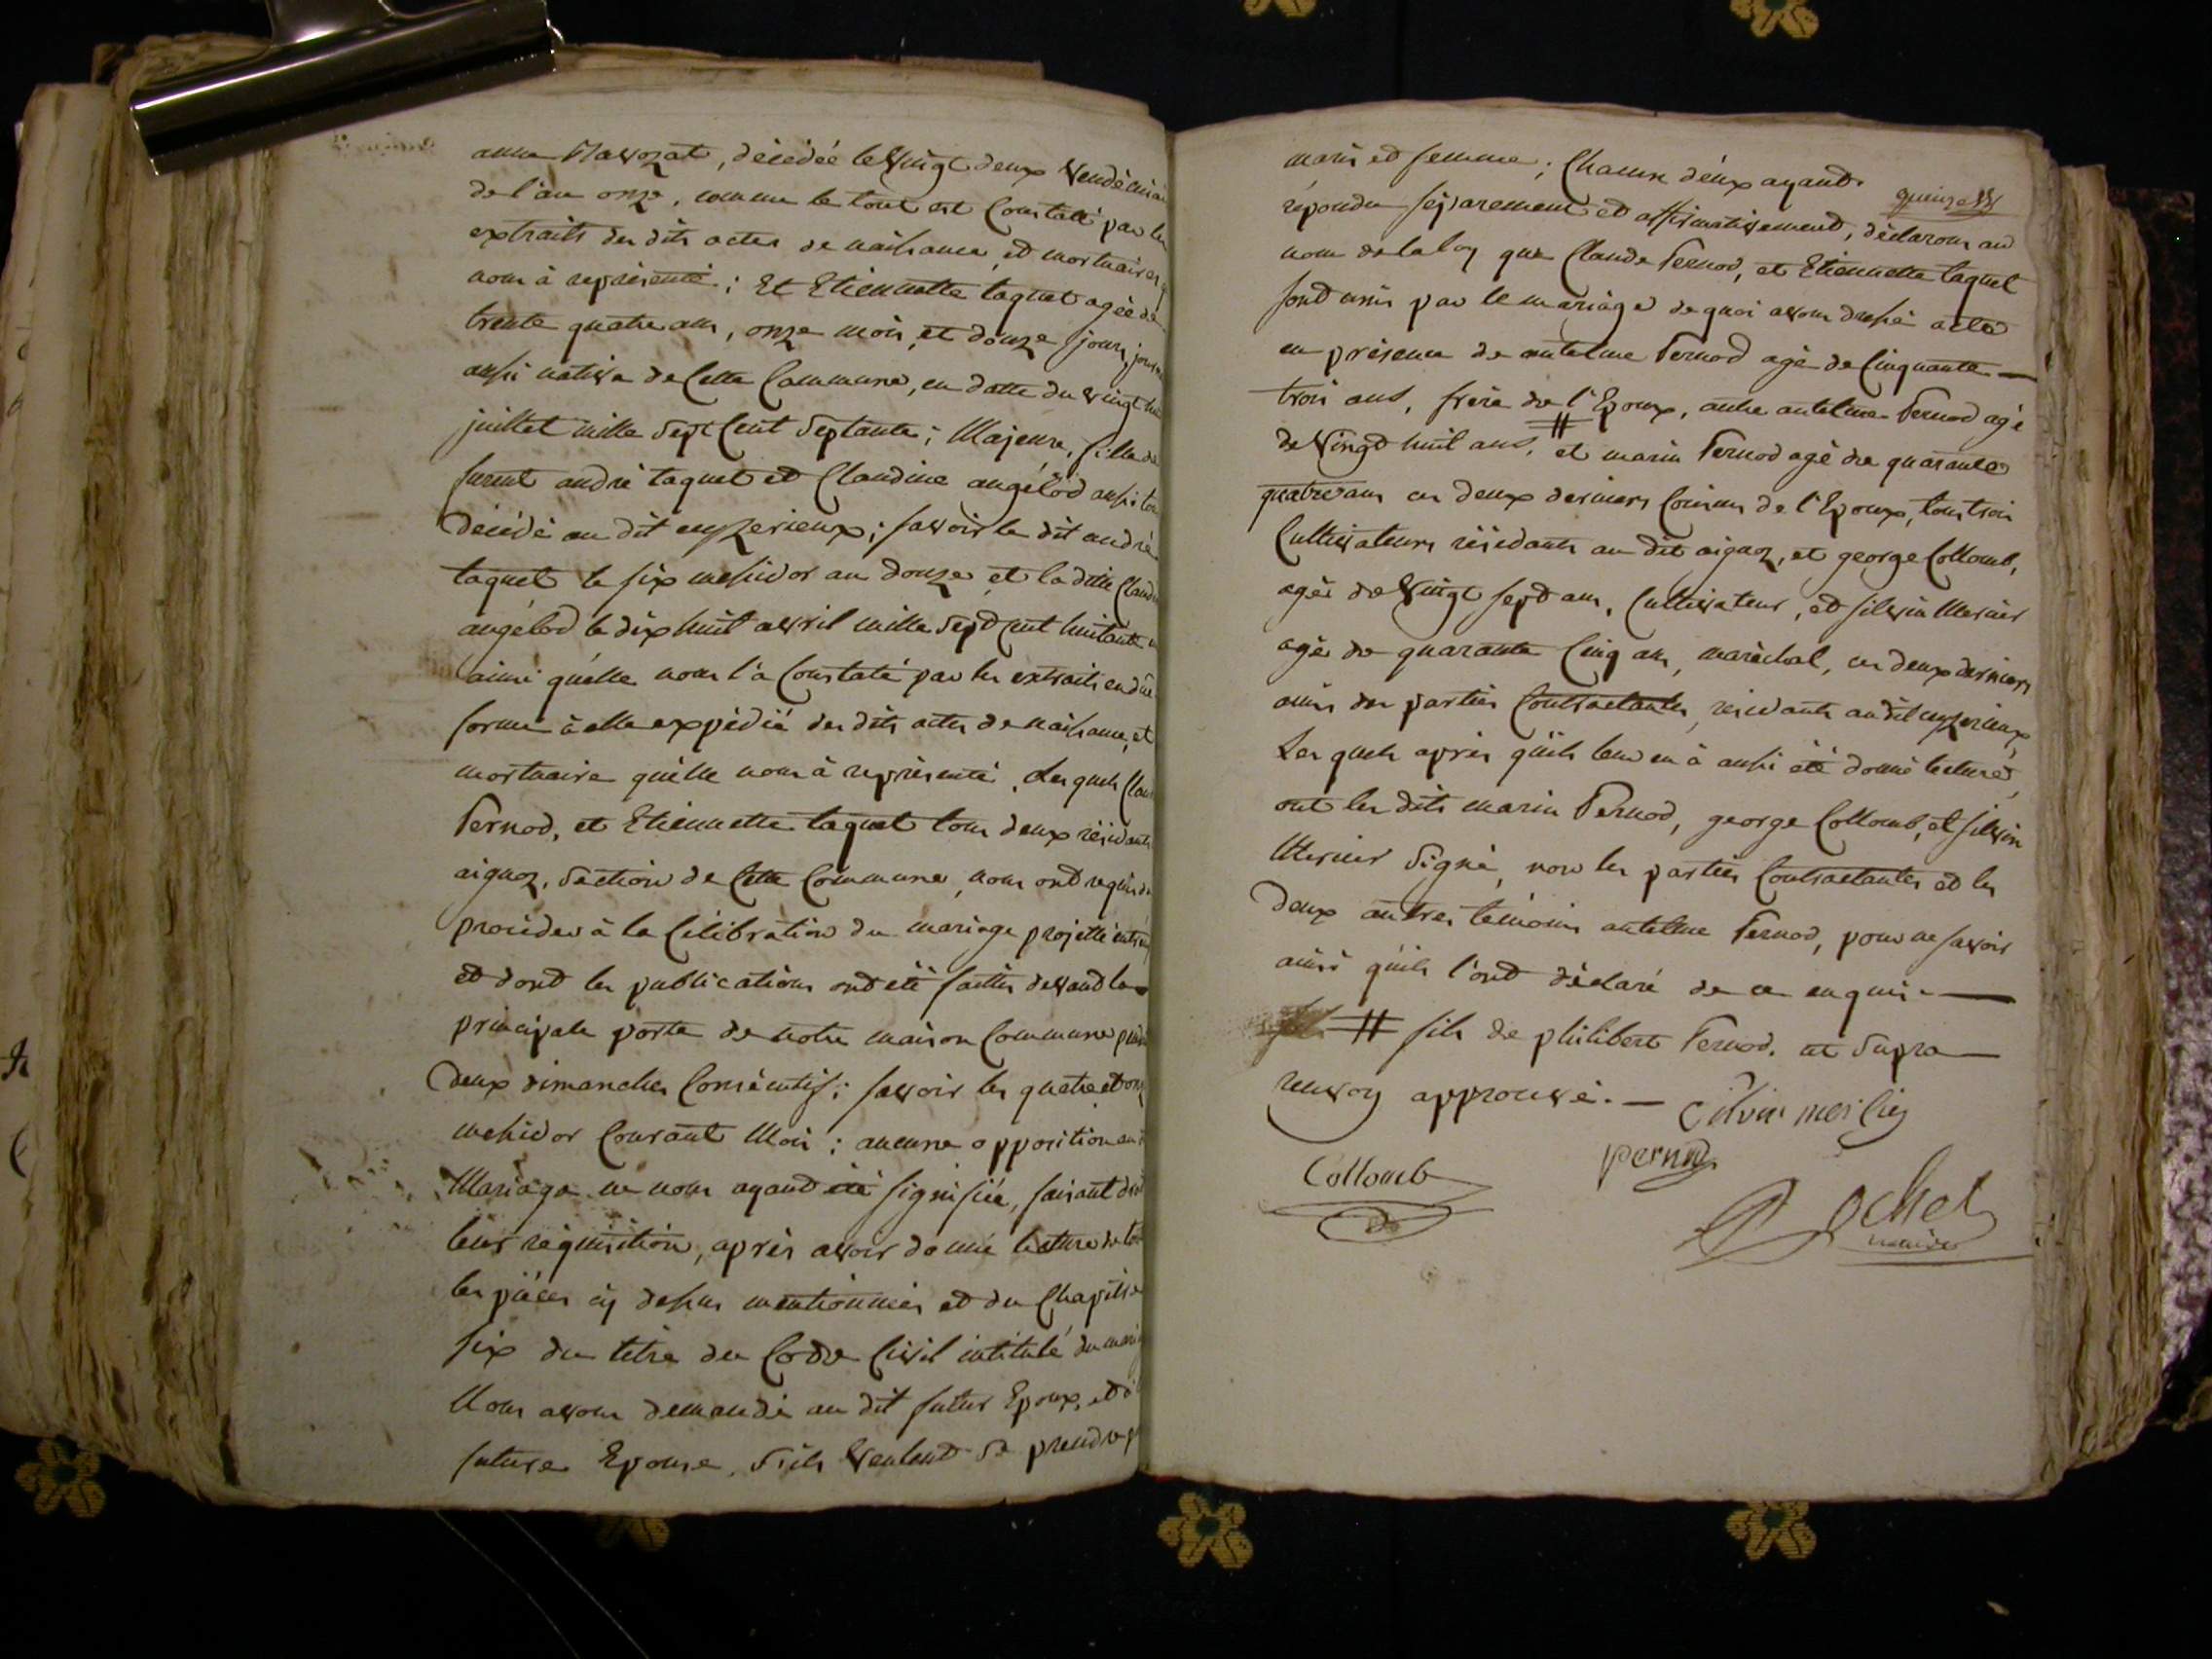 anne Mavozat, décédée le Vingt deux Vendémiai
de l'an onze, comme le tout est Constaté par les
extraits des dits actes de naissance, et mortuaires
nous à représenté ; Et Etiennette taquet agée de
trente quatre ans, onze mois, et douze jours,
aussi native de Cette Commune, en datte du vingt
juillet mille Sept Cent Septante ; Majeure, fille de
furent andré taquet et Claudine angélod aussi
décédé au dit ceyzerieux ; savoir le dit andré
taquet le six messidor an douze, et la dite Claud
angélod le dix huit avril mille Sept Cent huitante
ainsi qu'elle nous l'à Constaté par les extraits en due
forme à elle expédié des dits actes de naissance, et
mortuaire qu'elle nous à représenté. Les quels Clau
Pernod, et Etiennette taquet tous deux résidants
aignoz, Section de Cette Commune, nous ont requis de
procéder à la Célébration du mariage projetté entre
et dont les publications ont été faittes devant la
principale porte de notre maison Commune
deux dimanches Consécutifs ; savoir les quatre et onze
messidor Courant Mois ; aucune opposition au
Mariage ne nous ayant été signifiée, faisant droit
leur réquisition, après avoir donné lecture de
les pièces cy dessus mentionnées et du Chapitre
six du titre du Code Civil intitulé du mari
Nous avons demandé au dit futur Epoux, et à
future Epouse, S'ils Veulent Se prendre
quinze
maris et femme ; Chacun d'eux ayant
répondu séparement et affirmativement, déclarons au
nom de la loy que Claude Pernod, et Etiennette taquet
sont unis par le mariage de quoi avons dressé acte
en présence de antelme Pernod agé de Cinquante —
trois ans, frère de l'Epoux, autre antelme Pernod agé
de Vingt huit ans, # et marin Pernod agé de quarante
quatre ans ces deux derniers Cousins de l'Epoux, tous trois
Cultivateurs résidants au dit aignoz, et george Collomb,
agé de Vingt sept ans, Cultivateur, et silvin Mercier
agé de quarante Cinq ans, maréchal, ces deux derniers
amis des parties Contractantes, résidants au dit ceyzerieux,
Les quels après qu'ils leur en à aussi été donné lecture,
ont les dits marin Pernod, george Collomb, et silvin
Mercier Signé, non les parties Contractantes et les
deux autres témoins antelme Pernod, pour ne savoir
ainsi qu'ils l'ont déclaré de ce enquis. —
# fils de philibert Pernod. ut Supra —
renvoy approuvé. — Cilvin mercier
pernod
Collomb
Rochet
maire